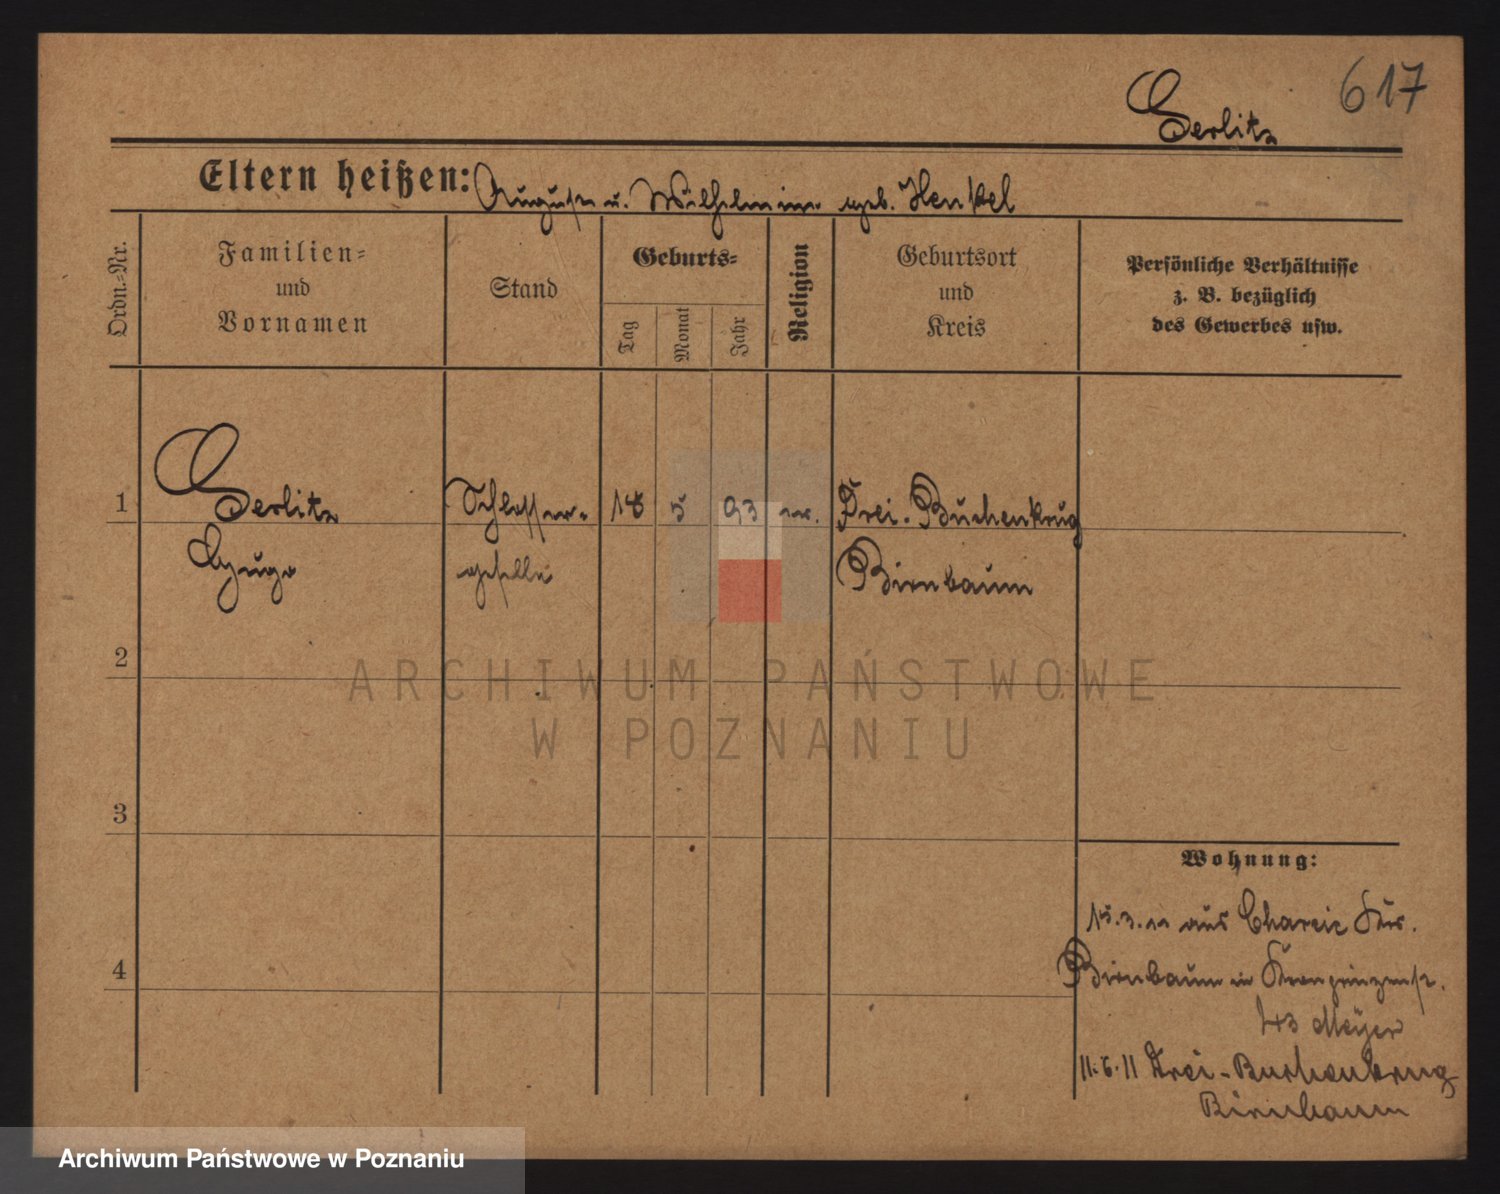 617
Gerlitz
Eltern heißen: August u. Wilhelmine geb. Henkel
Ordn.=Nr.
Familien=
und
Vornamen
Stand
Geburts=
Tag
Monat
Jahr
Religion
Geburtsort
und
Kreis
Persönliche Verhältnisse
z. B. bezüglich
des Gewerbes usw.
1 Gerlitz Schlosser- 18 5 93 ev. Drei-Buchenkrug
Hugo geselle Birnbaum
2
ARCHIWUM PAŃSTWOWE
W POZNANIU
3
Wohnung:
15.3.11 aus Kr.
4
Birnbaum in Kronprinzenstr.
43 Meyer
11.6.11 Drei-Buchenkrug
Birnbaum
Archiwum Państwowe w Poznaniu